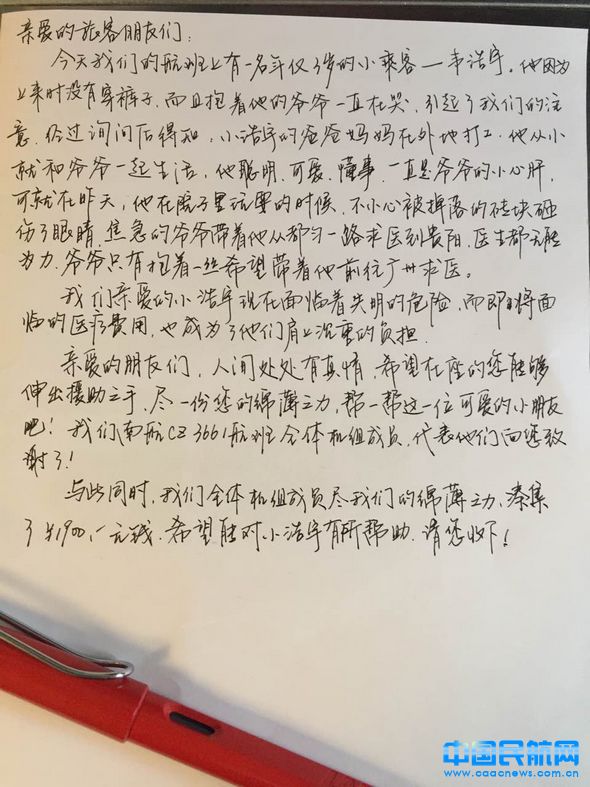 亲爱的旅客朋友们：
今天我们的航班上有一名年仅3岁的小乘客—韦浩宇。他因为
上来时没有穿裤子，而且抱着他的爷爷一直在哭，引起了我们的注
意。经过询问后得知，小浩宇的爸爸妈妈在外地打工，他从小
就和爷爷一起生活，他聪明、可爱、懂事，一直是爷爷的小心肝，
可就在昨天，他在院子里玩耍的时候，不小心被掉落的砖块砸
伤了眼睛，焦急的爷爷带着他从都匀一路求医到贵阳，医生都无能
为力，爷爷只有抱着一丝希望带着他前往广州求医。
我们亲爱的小浩宇现在面临着失明的危险，而即将面
临的医疗费用，也成为了他们肩上沉重的负担。
亲爱的朋友们，人间处处有真情，希望在座的您能够
伸出援助之手，尽一份您的绵薄之力，帮一帮这一位可爱的小朋友
吧！我们南航CZ3661航班全体机组成员，代表他们向您致
谢了！
与此同时，我们全体机组成员尽我们的绵薄之力，凑集
了¥1900.-元钱，希望能对小浩宇有所帮助，请您收下！
中国民航网
www.caacnews.com.cn